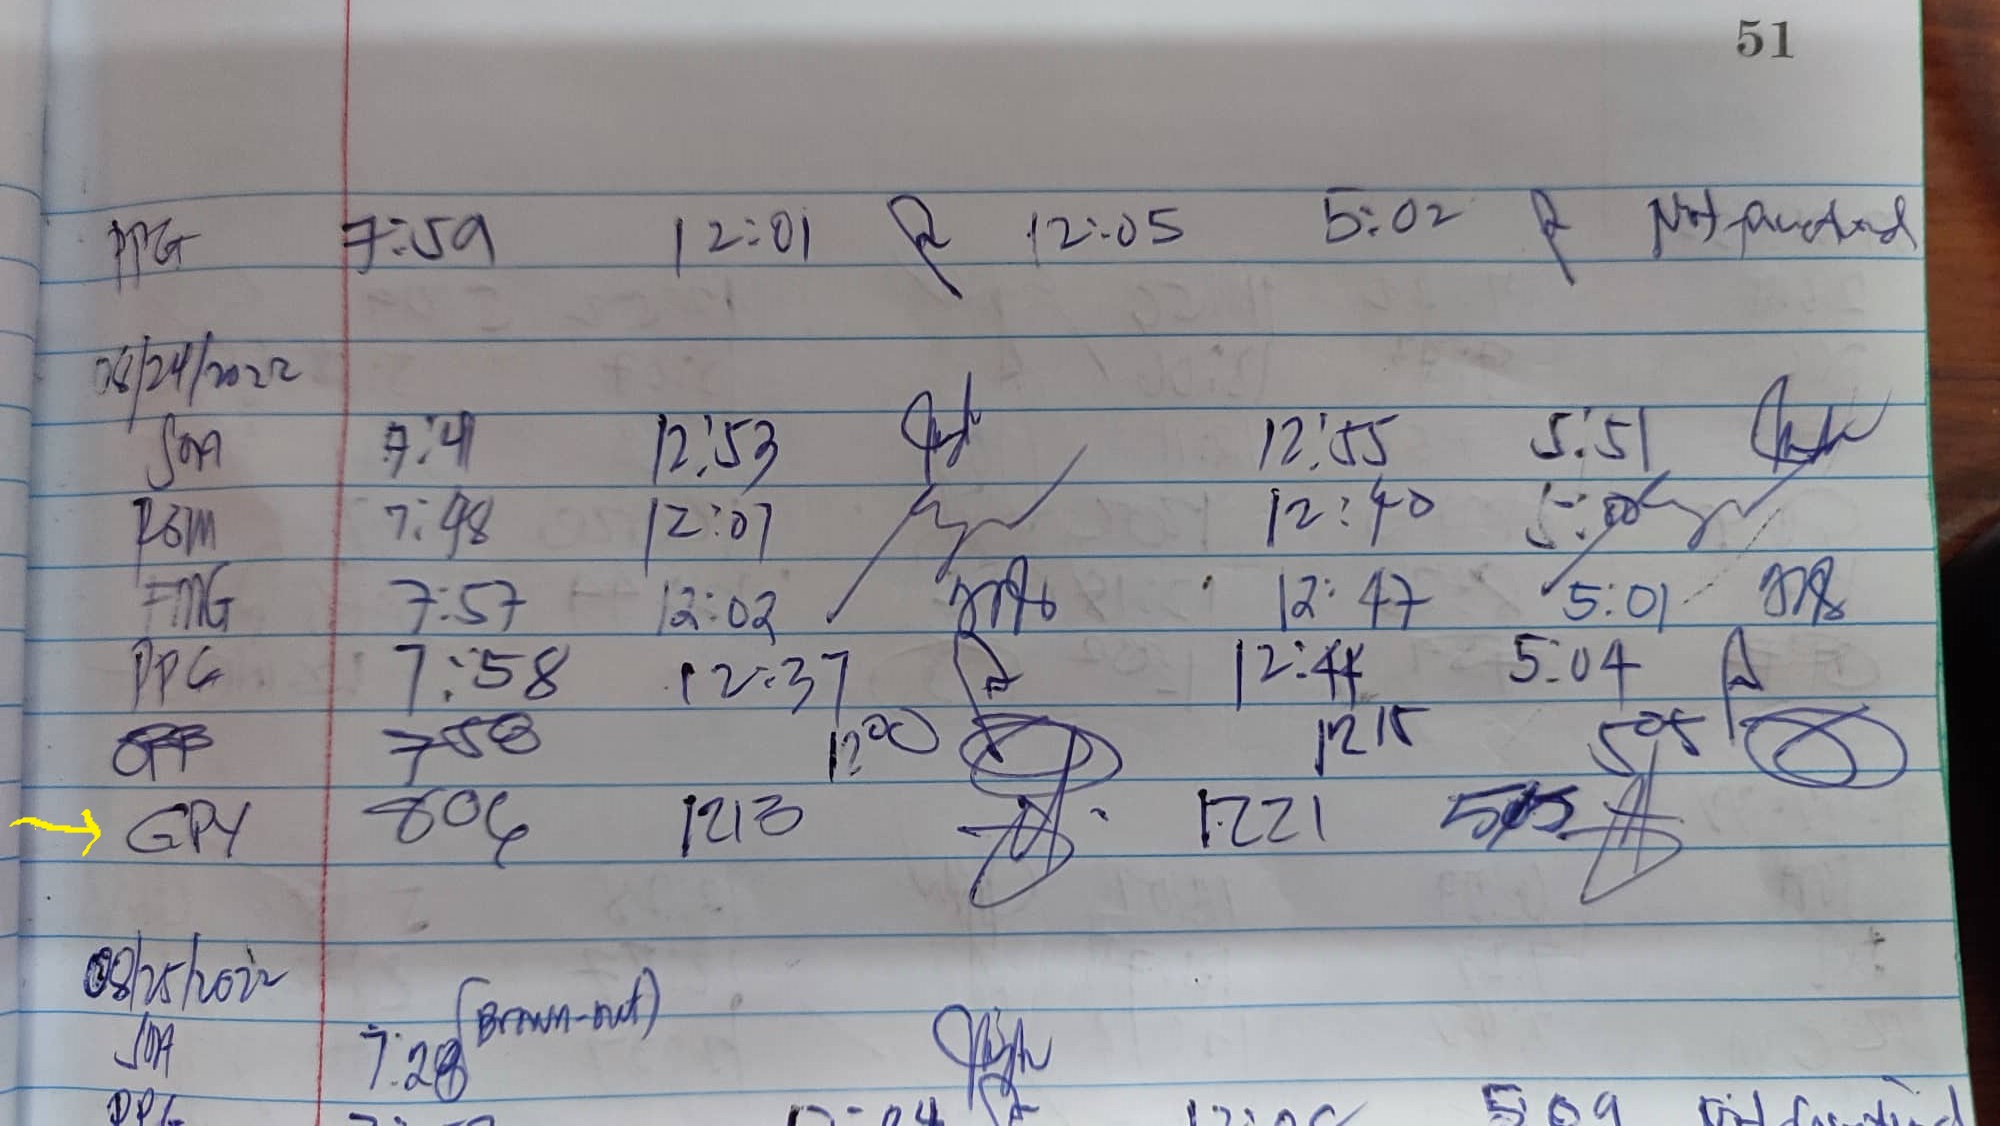 51
PPG 7:59 12:01 12:05 5:02 Not
08/24/2022
SOA 7:41 12:53 12:55 5:51
RSM 7:48 12:07 12:40 5:00
FMG 7:57 12:02 12:47 5:01
PPG 7:58 12:37 12:44 5:04
758 1200 1215 505
GPY 806 1213 1221 505
08/25/2022
SOA 7:28 (Brown-out)
PPG 5:09 Not